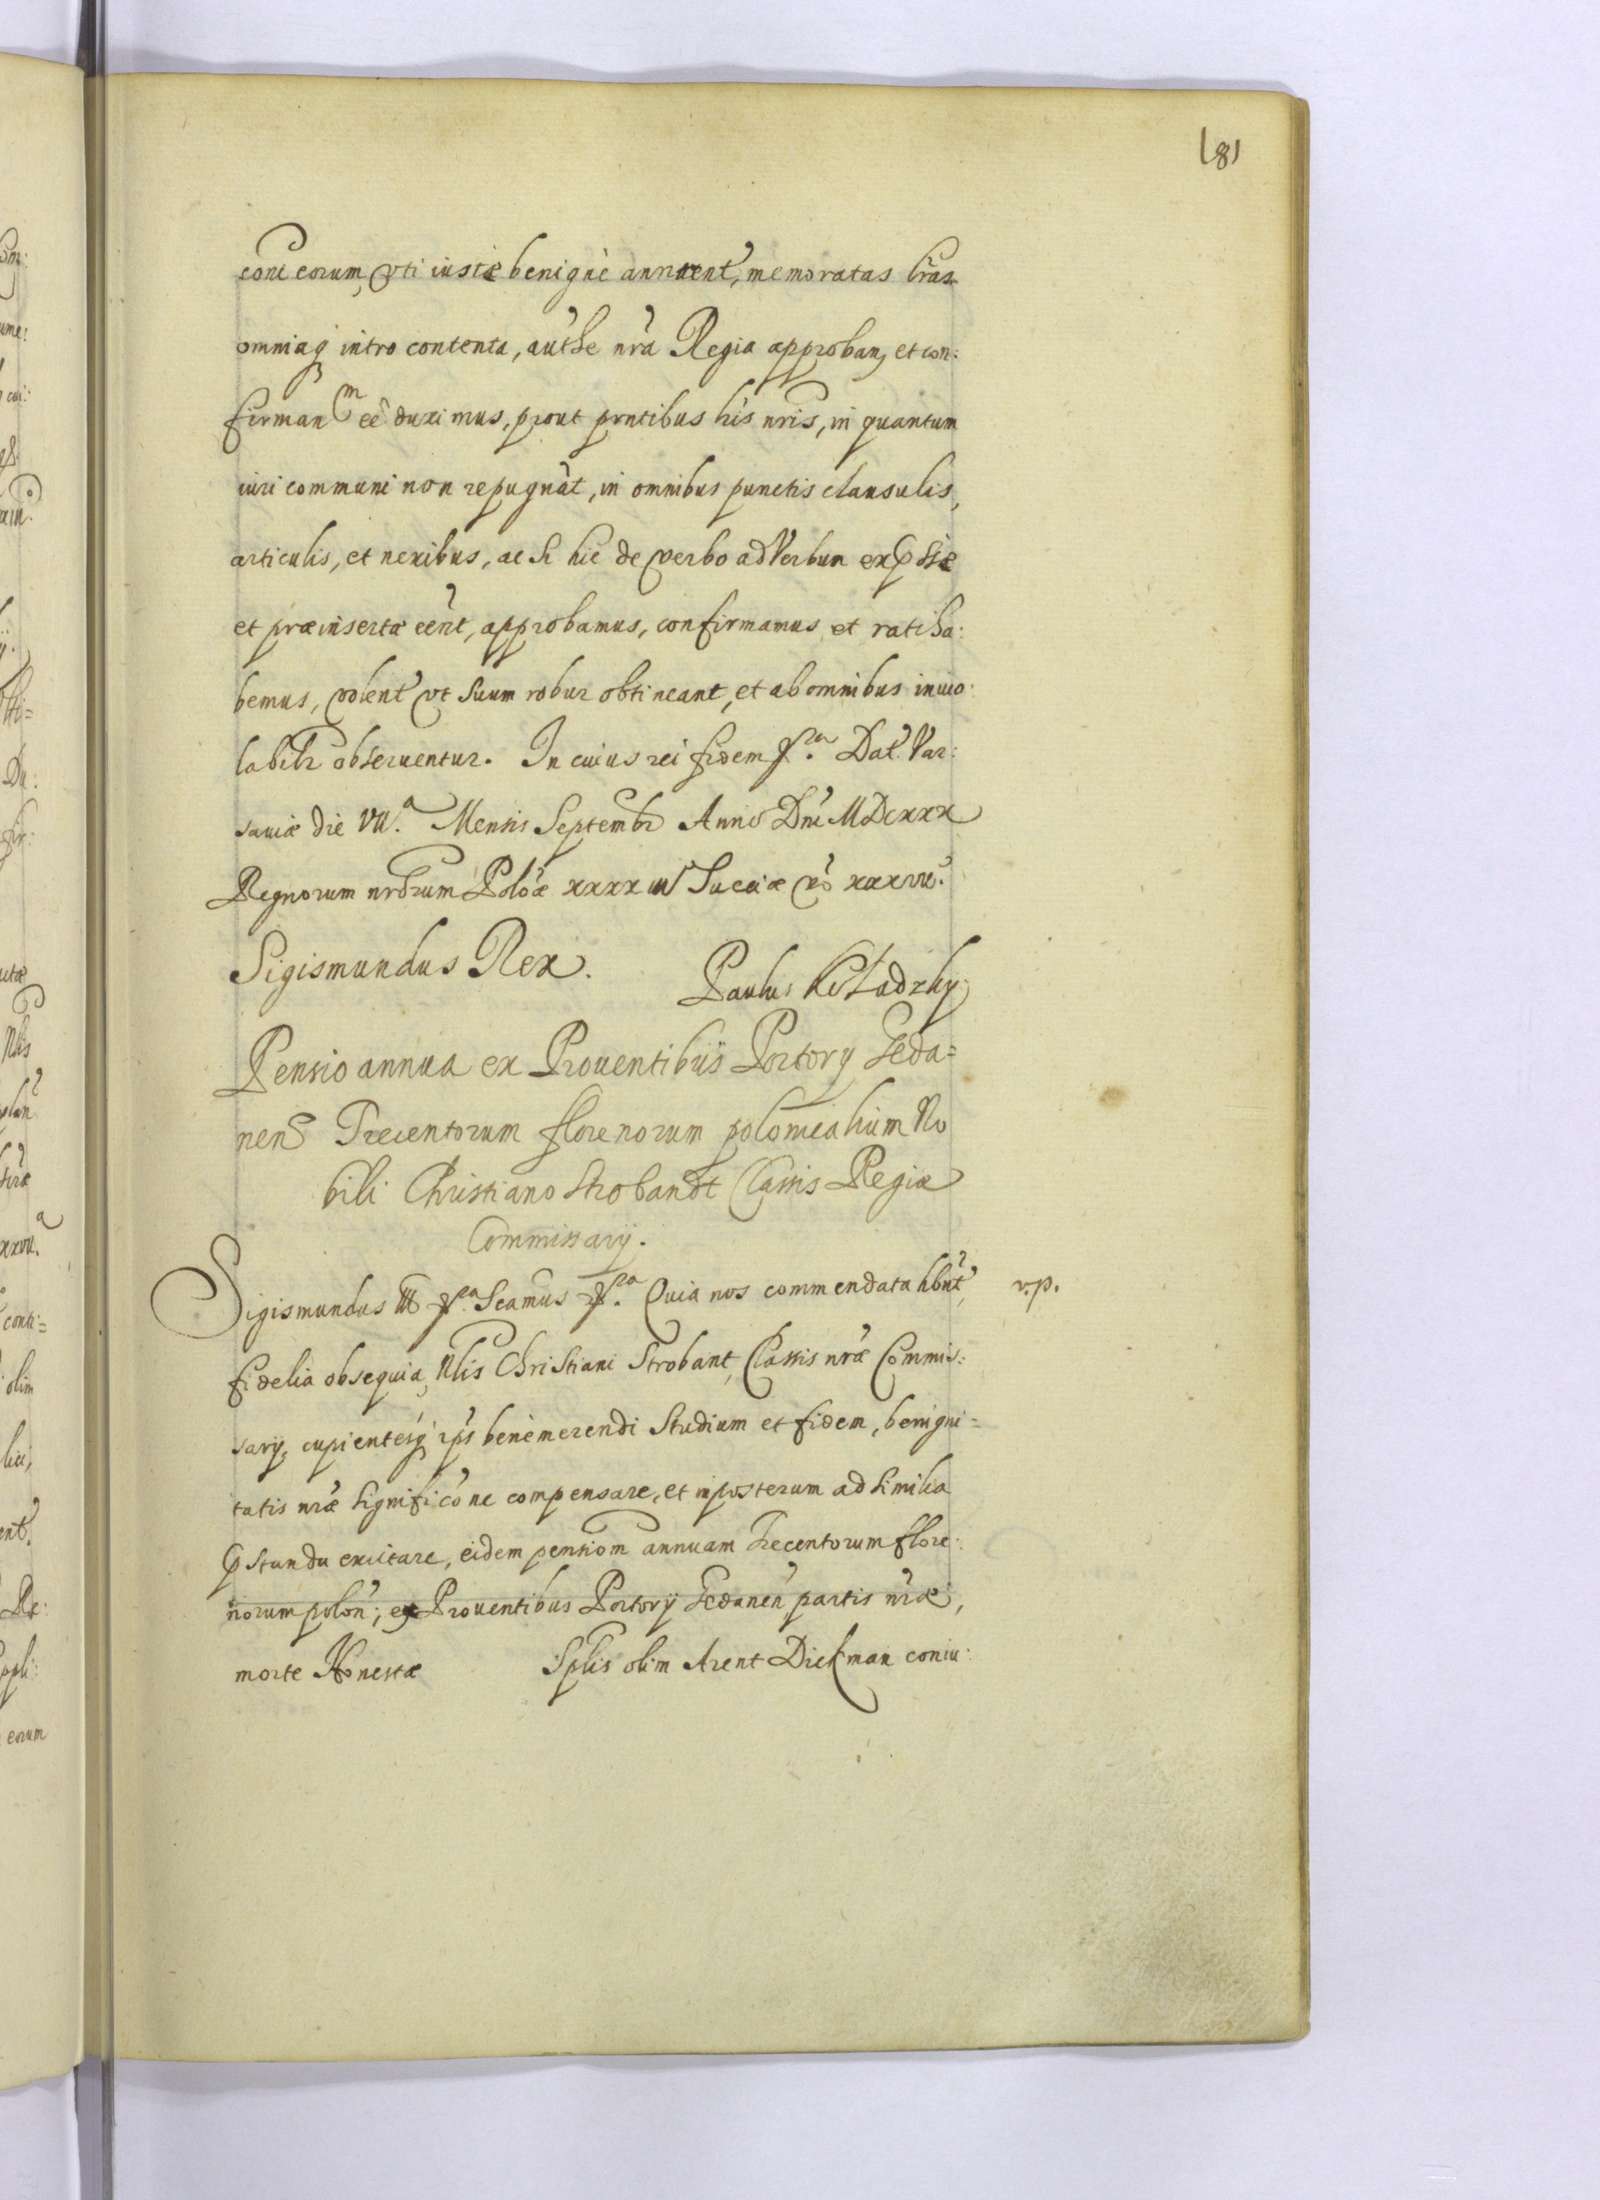 181
coni eorum, vti iustæ benignè annuent, memoratas lras
omniaq intro contenta, authe nra Regia approban, et con:
firman m eê duximus, prout prntibus his nris, in quantum
iuri communi non repugnat, in omnibus punctis clausulis,
articulis, et nexibus, ac si hic de verbo ad verbum expssæ
et præinsertæ eent, approbamus, confirmamus et ratiha:
bemus, volent vt suum robur obtineant, et ab omnibus inuio:
labilr obseruentur. In cuius rei fidem Dat. Var:
sauiæ die VII.a Mensis Septembr Anno Dni MDCXXX
Regnorum nrorum Poloæ xxxxIII Sueciæ vo xxxvII.
Sigismundus Rex.
Paulus
Pensio annua ex Prouentibus Portorij Geda=
nens Trecentorum florenorum polonicalium No
bili Christiano Strobandt Classis Regiæ
Commissarij.
Sigismundus III Scamus Quia nos commendata hbnt, v.p.
fidelia obsequia, Nlis Christiani Strobant, Classis nræ Commis:
sarij, cupientesq ips benèmerendi Studium et fidem, benigni=
tatis nræ significone compensare, et in posterum ad similia
pstandu excitare, eidem pensiom annuam Trecentorum flore:
norum polon; ex Prouentibus Portorij Gedanen partis nræ,
morte Honestæ Splis olim Arent Dickman coniu: